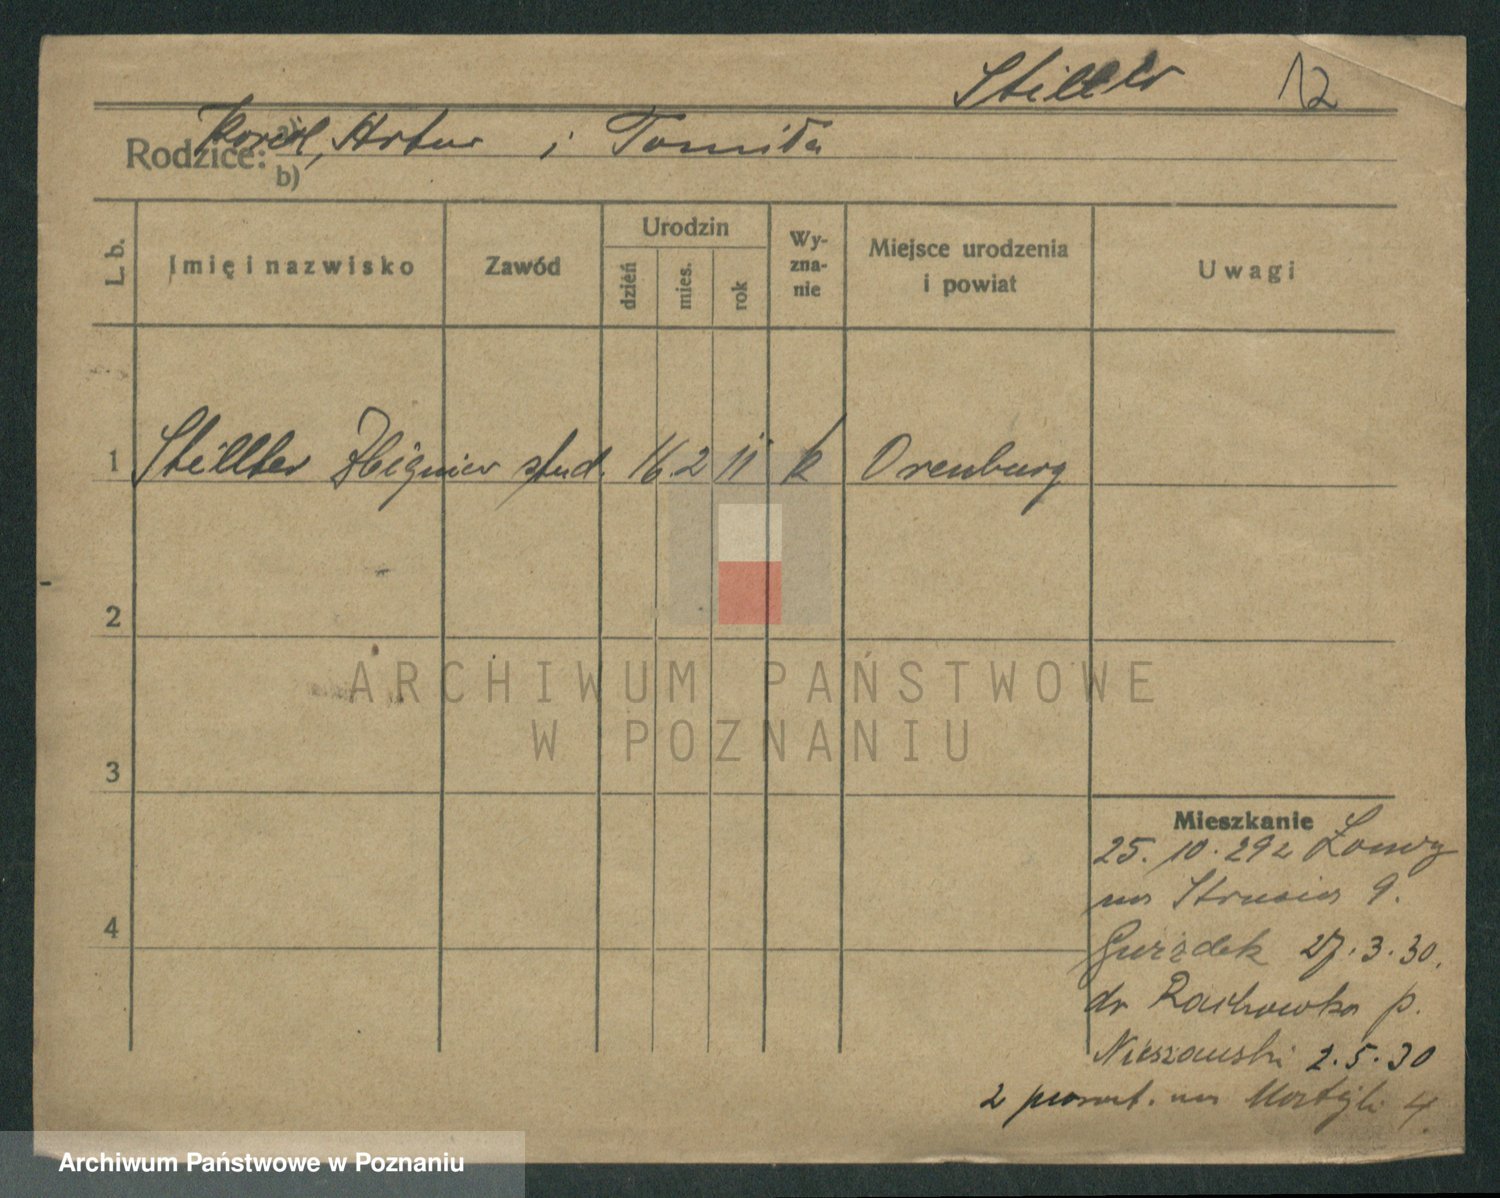 Stiller 12
Rodzice: Karol, Artur i Tomiła
b)
L. b.
Imię i nazwisko
Zawód
Urodzin
dzień
mies.
rok
Wy-
zna-
nie
Miejsce urodzenia
i powiat
Uwagi
1 Stiller Zbigniew stud. 16 2 11 k Orenburg
2
ARCHIWUM PAŃSTWOWE
W POZNANIU
3
Mieszkanie
25. 10. 29 z Łomży
na Strusia 9.
4
27.3.30.
do p.
2.5.30
z na 4
Archiwum Państwowe w Poznaniu